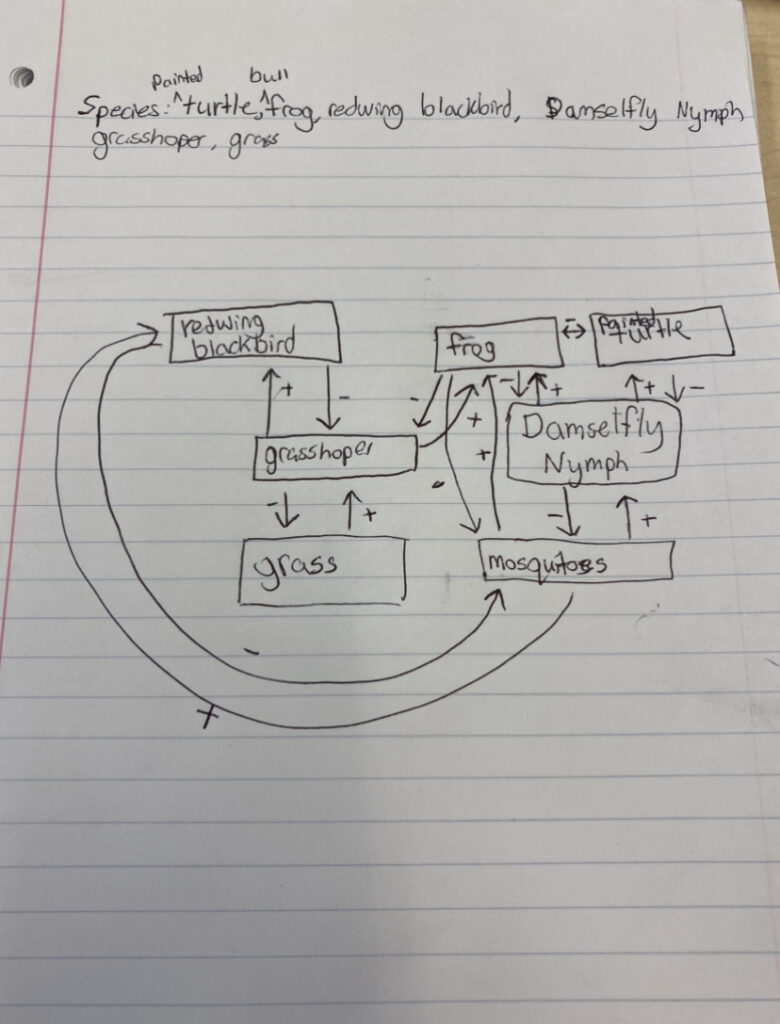 painted bull
Species: ^turtle, ^frog, redwing blackbird, Damselfly Nymph
grasshoper, grass
redwing
blackbird
frog
↔
-
painted
turtle
+
-
-
+
+
-
-
+
+
+
-
Damselfly
Nymph
grasshoper
-
+
-
+
grass
mosquitoes
-
+